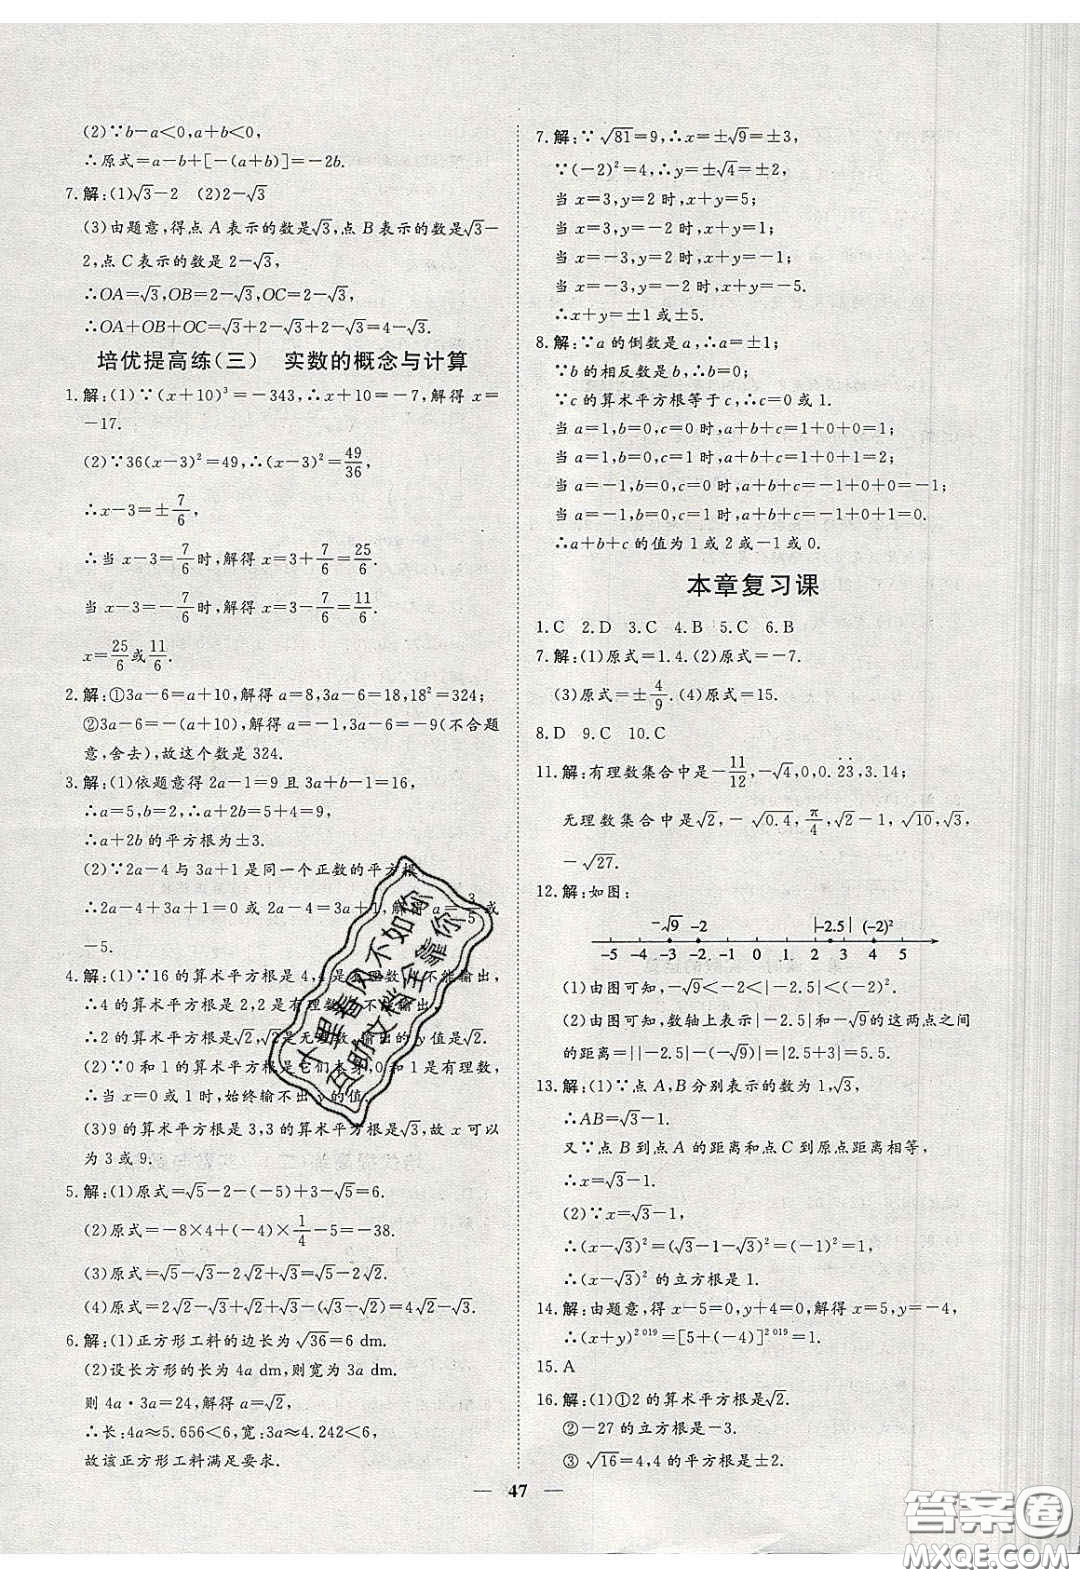 (2)∵b-a<0,a+b<0,
∴原式=a-b+[-(a+b)]=-2b.
7.解:(1)√3-2 (2)2-√3
(3)由题意,得点 A 表示的数是√3,点 B 表示的数是√3-
2,点 C 表示的数是 2-√3,
∴OA=√3,OB=2-√3,OC=2-√3,
∴OA+OB+OC=√3+2-√3+2-√3=4-√3.
培优提高练(三) 实数的概念与计算
1.解:(1)∵(x+10)³=-343,∴x+10=-7,解得 x=
-17.
(2)∵36(x-3)²=49,∴(x-3)²=49/36,
∴x-3=±7/6,
∴当 x-3=7/6时,解得 x=3+7/6=25/6
当 x-3=-7/6时,解得 x=3-7/6=11/6.
x=25/6或11/6.
2.解:①3a-6=a+10,解得 a=8,3a-6=18,18²=324;
②3a-6=-(a+10),解得 a=-1,3a-6=-9(不合题
意,舍去),故这个数是 324.
3.解:(1)依题意得 2a-1=9 且 3a+b-1=16,
∴a=5,b=2,∴a+2b=5+4=9,
∴a+2b 的平方根为±3.
(2)∵2a-4 与 3a+1 是同一个正数的平方根
∴2a-4+3a+1=0 或 2a-4=3a+1,解得 a=3/5或
-5.
4.解:(1)∵16 的算术平方根是 4,4 是有理数,不能输出,
∴4 的算术平方根是 2,2 是有理数,不能输出,
∴2 的算术平方根是√2,√2是无理数,输出的 y 值是√2.
(2)∵0 和 1 的算术平方根是它们本身,0 和 1 是有理数,
∴当 x=0 或 1 时,始终输不出 y 的值.
(3)9 的算术平方根是 3,3 的算术平方根是√3,故 x 可以
为 3 或 9.
5.解:(1)原式=√5-2-(-5)+3-√5=6.
(2)原式=-8×4+(-4)×1/4-5=-38.
(3)原式=√5-√3-2√2+√3=√5-2√2.
(4)原式=2√2-√3+√2+√3-(√3-√2)=4√2-√3.
6.解:(1)正方形工料的边长为√36=6 dm.
(2)设长方形的长为 4a dm,则宽为 3a dm.
则 4a·3a=24,解得 a=√2.
∴长:4a≈5.656<6,宽:3a≈4.242<6,
故该正方形工料满足要求.
7.解:∵√81=9,∴x=±√9=±3,
∵(-2)²=4,∴y=±√4=±2,
当 x=3,y=2 时,x+y=5;
当 x=3,y=-2 时,x+y=1;
当 x=-3,y=2 时,x+y=-1;
当 x=-3,y=-2 时,x+y=-5.
∴x+y=±1 或±5.
8.解:∵a 的倒数是 a,∴a=±1;
∵b 的相反数是 b,∴b=0;
∵c 的算术平方根等于 c,∴c=0 或 1.
当 a=1,b=0,c=0 时,a+b+c=1+0+0=1;
当 a=1,b=0,c=1 时,a+b+c=1+0+1=2;
当 a=-1,b=0,c=0 时,a+b+c=-1+0+0=-1;
当 a=-1,b=0,c=1 时,a+b+c=-1+0+1=0.
∴a+b+c 的值为 1 或 2 或-1 或 0.
本章复习课
1.C 2.D 3.C 4.B 5.C 6.B
7.解:(1)原式=1.4.(2)原式=-7.
(3)原式=±4/9.(4)原式=15.
8.D 9.C 10.C
11.解:有理数集合中是-11/12,-√4,0,0.2̇3̇,3.14;
无理数集合中是√2,-√0.4,π/4,√2-1,√10,√3,
-√27.
12.解:如图:
-√9 -2 |-2.5| (-2)²
-5 -4 -3 -2 -1 0 1 2 3 4 5
(1)由图可知,-√9<-2<|-2.5|<(-2)².
(2)由图可知,数轴上表示|-2.5|和-√9的这两点之间
的距离=||-2.5|-(-√9)|=|2.5+3|=5.5.
13.解:(1)∵点 A,B 分别表示的数为 1,√3,
∴AB=√3-1.
又∵点 B 到点 A 的距离和点 C 到原点距离相等,
∴x=√3-1.
(2)∵x=√3-1,
∴(x-√3)²=(√3-1-√3)²=(-1)²=1,
∴(x-√3)²的立方根是 1.
14.解:由题意,得 x-5=0,y+4=0,解得 x=5,y=-4,
∴(x+y)²⁰¹⁹=[5+(-4)]²⁰¹⁹=1.
15.A
16.解:(1)①2 的算术平方根是√2.
②-27 的立方根是-3.
③√16=4,4 的平方根是±2.
47
十里春风不如你
互助文档全靠你
答案圈
MXQE.COM